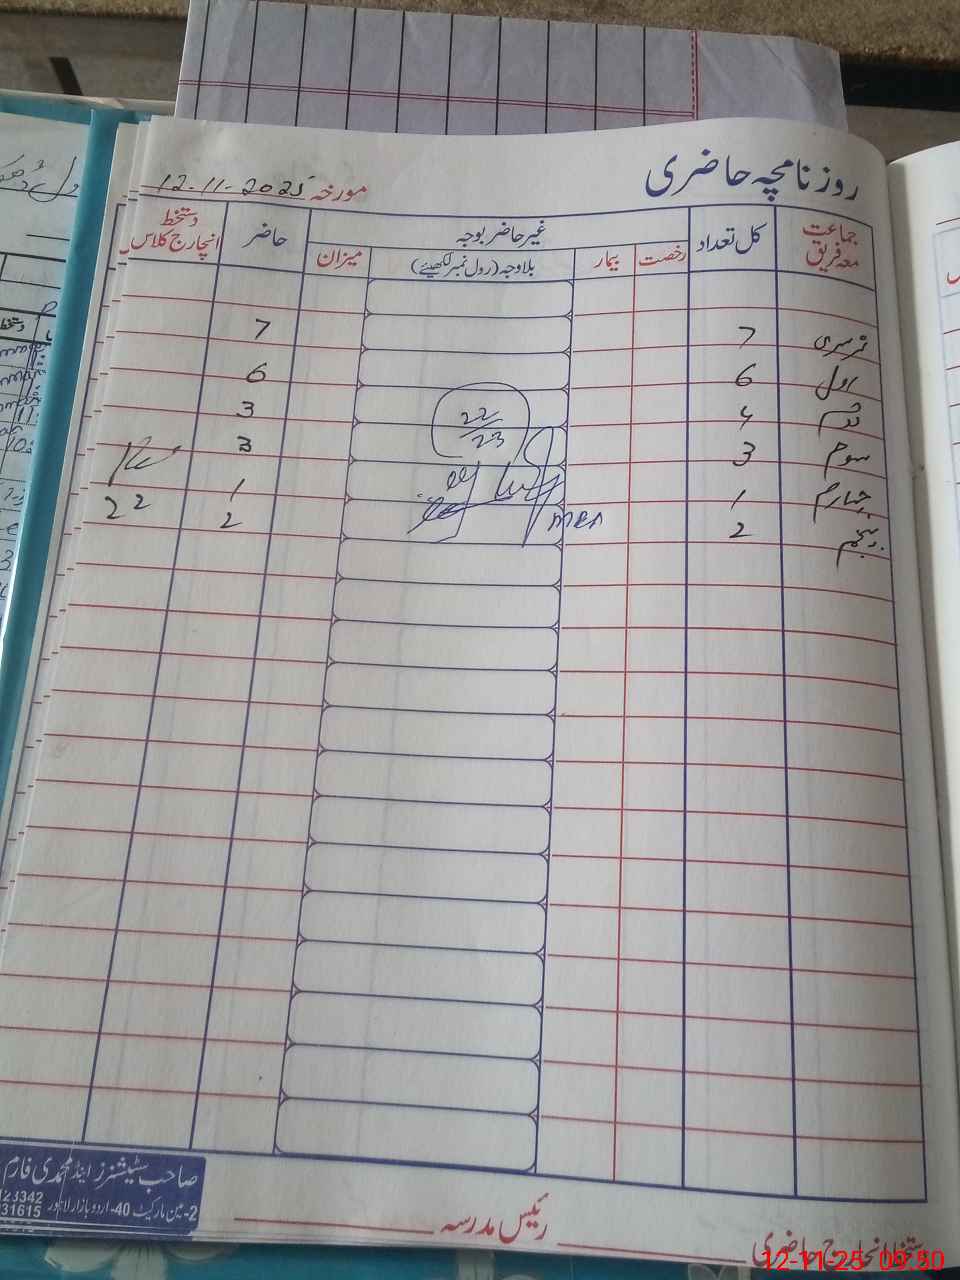 روزنامچہ حاضری
مورخہ 12-11-2025
جماعت معہ فریق
کل تعداد
غیر حاضر بوجہ
رخصت
بیمار
بلاوجہ (رول نمبر لکھیئے)
میزان
حاضر
دستخط انچارج کلاس
نرسری 7 7
اول 6 6
دوم 4 3
سوم 3 3
چہارم 1 1
پنجم 2 2
22
22/23
رئیس مدرسہ
دستخط انچارج حاضری
صاحب سٹیشنرز اینڈ محمدی فارم
2-مین مارکیٹ 40-اردو بازار لاہور
31615
12-11-25 09:50